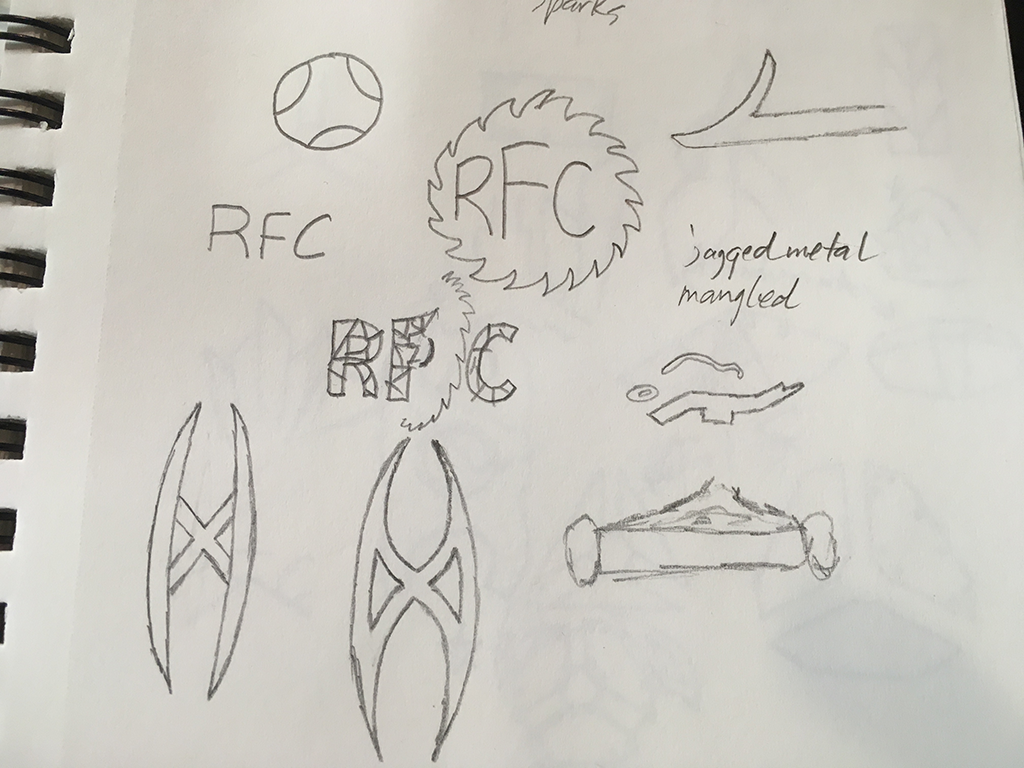 sparks
RFC
RFC
jagged metal
mangled
RFC